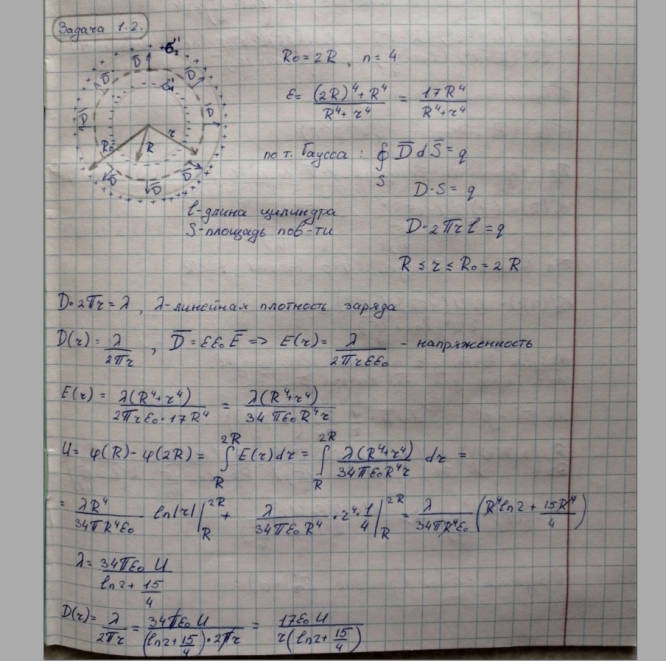 Задача 1.2.
R₀ = 2R, n = 4
ε = ((2R)⁴ + R⁴)/(R⁴ + r⁴) = 17R⁴/(R⁴ + r⁴)
σ₂''
σ₁''
D̄ D̄ D̄ D̄ D̄ D̄ D̄ D̄
R₀ R r
по т. Гаусса : ∮_S D̄ dS̄ = q
D·S = q
l-длина цилиндра
S-площадь пов-ти
D·2πrl = q
R ≤ r ≤ R₀ = 2R
D·2πr = λ, λ-линейная плотность заряда
D(r) = λ/(2πr), D̄ = εε₀Ē => E(r) = λ/(2πrεε₀) - напряженность
E(r) = λ(R⁴+r⁴)/(2πrε₀·17R⁴) = λ(R⁴+r⁴)/(34πε₀R⁴r)
U = φ(R) - φ(2R) = ∫_R^2R E(r)dr = ∫_R^2R λ(R⁴+r⁴)/(34πε₀R⁴r) dr =
= λR⁴/(34πR⁴ε₀) ln|r| |_R^2R + λ/(34πε₀R⁴) · r⁴·1/4 |_R^2R = λ/(34πR⁴ε₀) (R⁴ln2 + 15R⁴/4)
λ = 34πε₀U/(ln2 + 15/4)
D(r) = λ/(2πr) = 34πε₀U/((ln2 + 15/4)·2πr) = 17ε₀U/(r(ln2 + 15/4))